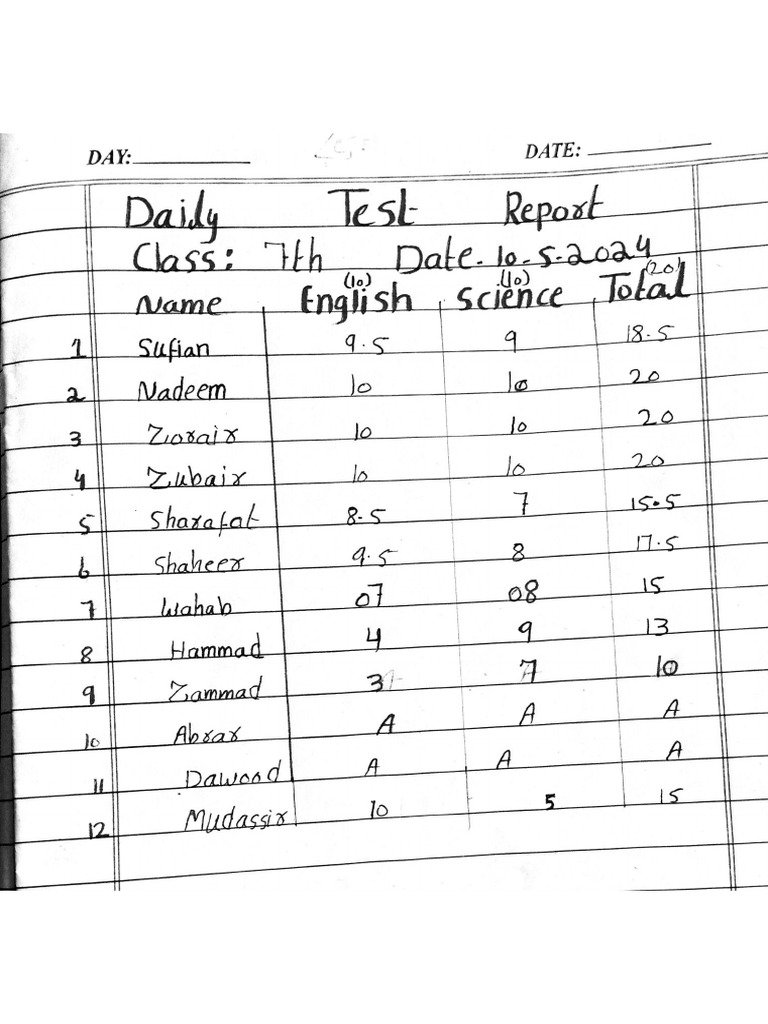 DAY: DATE:
Daily Test Report
Class: 7th Date. 10-5-2024
Name English (10) Science (10) Total (20)
1 Sufian 9.5 9 18.5
2 Nadeem 10 10 20
3 Ziorair 10 10 20
4 Zubair 10 10 20
5 Sharafat 8.5 7 15.5
6 Shaheer 9.5 8 17.5
7 Wahab 07 08 15
8 Hammad 4 9 13
9 Zammad 3 7 10
10 Abrar A A A
11 Dawood A A A
12 Mudassir 10 5 15